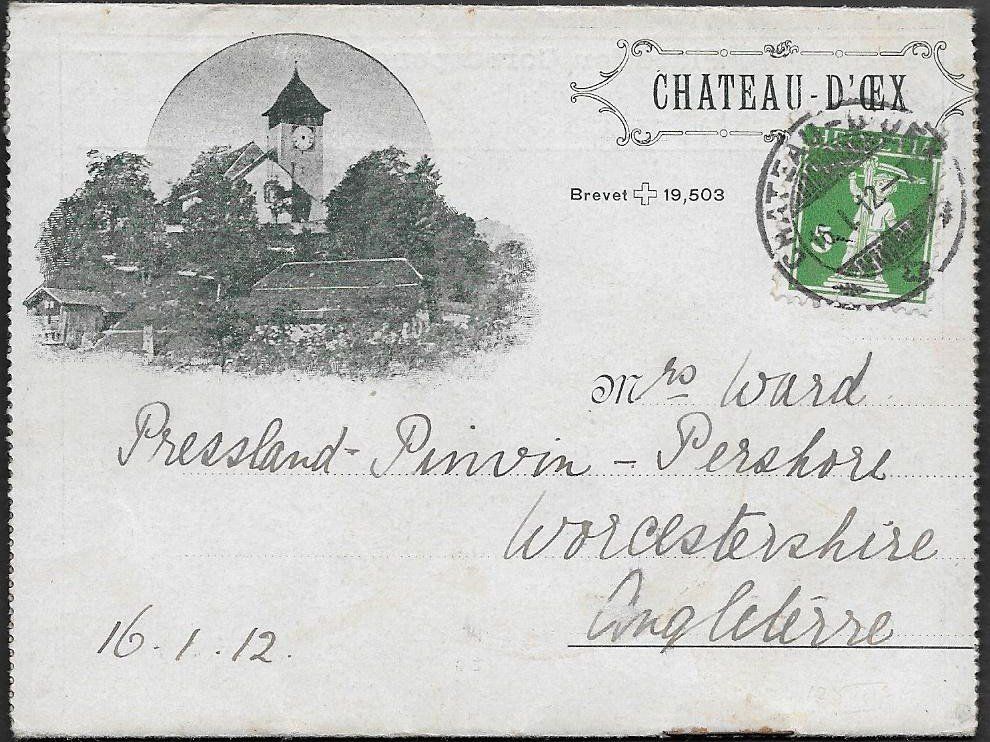 CHATEAU-D'ŒX
Brevet 19,503
CHATEAU-D'ŒX
1.12
5
Mrs Ward
Pressland - Pinvin - Pershore
Worcestershire
Angleterre
16.1.12.